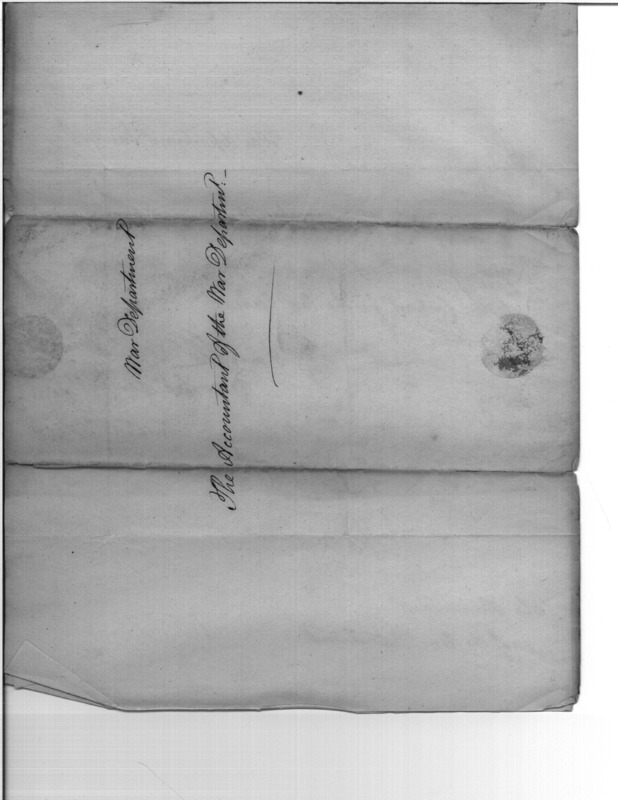 War Department
The Accountant of the War Departmt: